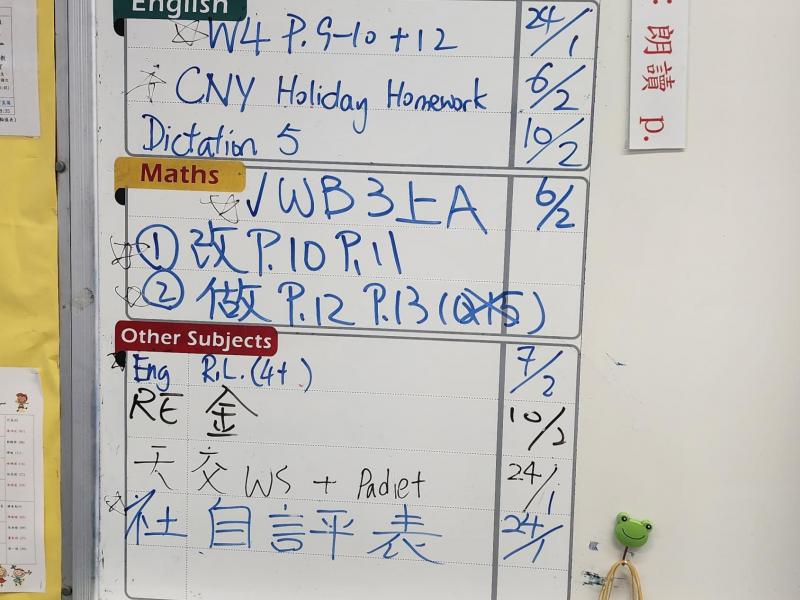 English
☆ W4 P.9-10 +12 24/1
☆ CNY Holiday Homework 6/2
Dictation 5 10/2
Maths
☆ √ WB 3上A 6/2
☆ ① 改 P.10 P.11
☆ ② 做 P.12 P.13 (
Other Subjects
Eng R.L. (4+ ) 7/2
RE 金 10/2
天 交 WS + Padlet 24/1
☆ 社 自評表 24/1
: 朗讀 p.